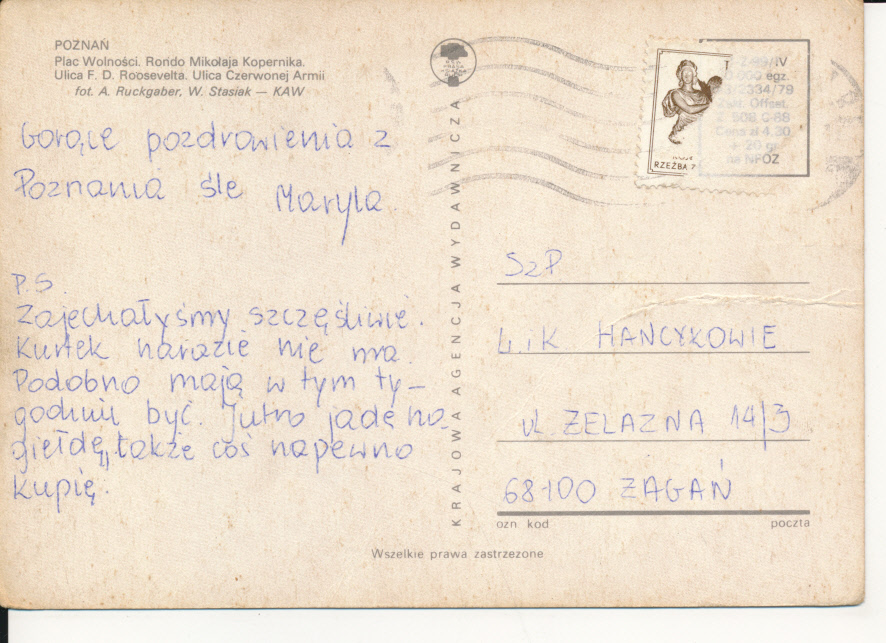 POZNAŃ
Plac Wolności. Rondo Mikołaja Kopernika.
Ulica F. D. Roosevelta. Ulica Czerwonej Armii
fot. A. Ruckgaber, W. Stasiak — KAW
Gorące pozdrowienia z
Poznania śle Maryla
P.S.
Zajechałyśmy szczęśliwie.
Kurtek narazie nie ma.
Podobno mają w tym ty-
godniu być. Jutro jadę na
giełdę, także coś napewno
kupię.
KRAJOWA AGENCJA WYDAWNICZA
RZEŹBA
IV
egz.
2334/79
Offset.
Cena zł 4,30
+ 20 gr
na NFOZ
SzP.
HAŃCYKOWIE
ul. ŻELAZNA 14/3
68-100 ŻAGAŃ
ozn kod poczta
Wszelkie prawa zastrzezone